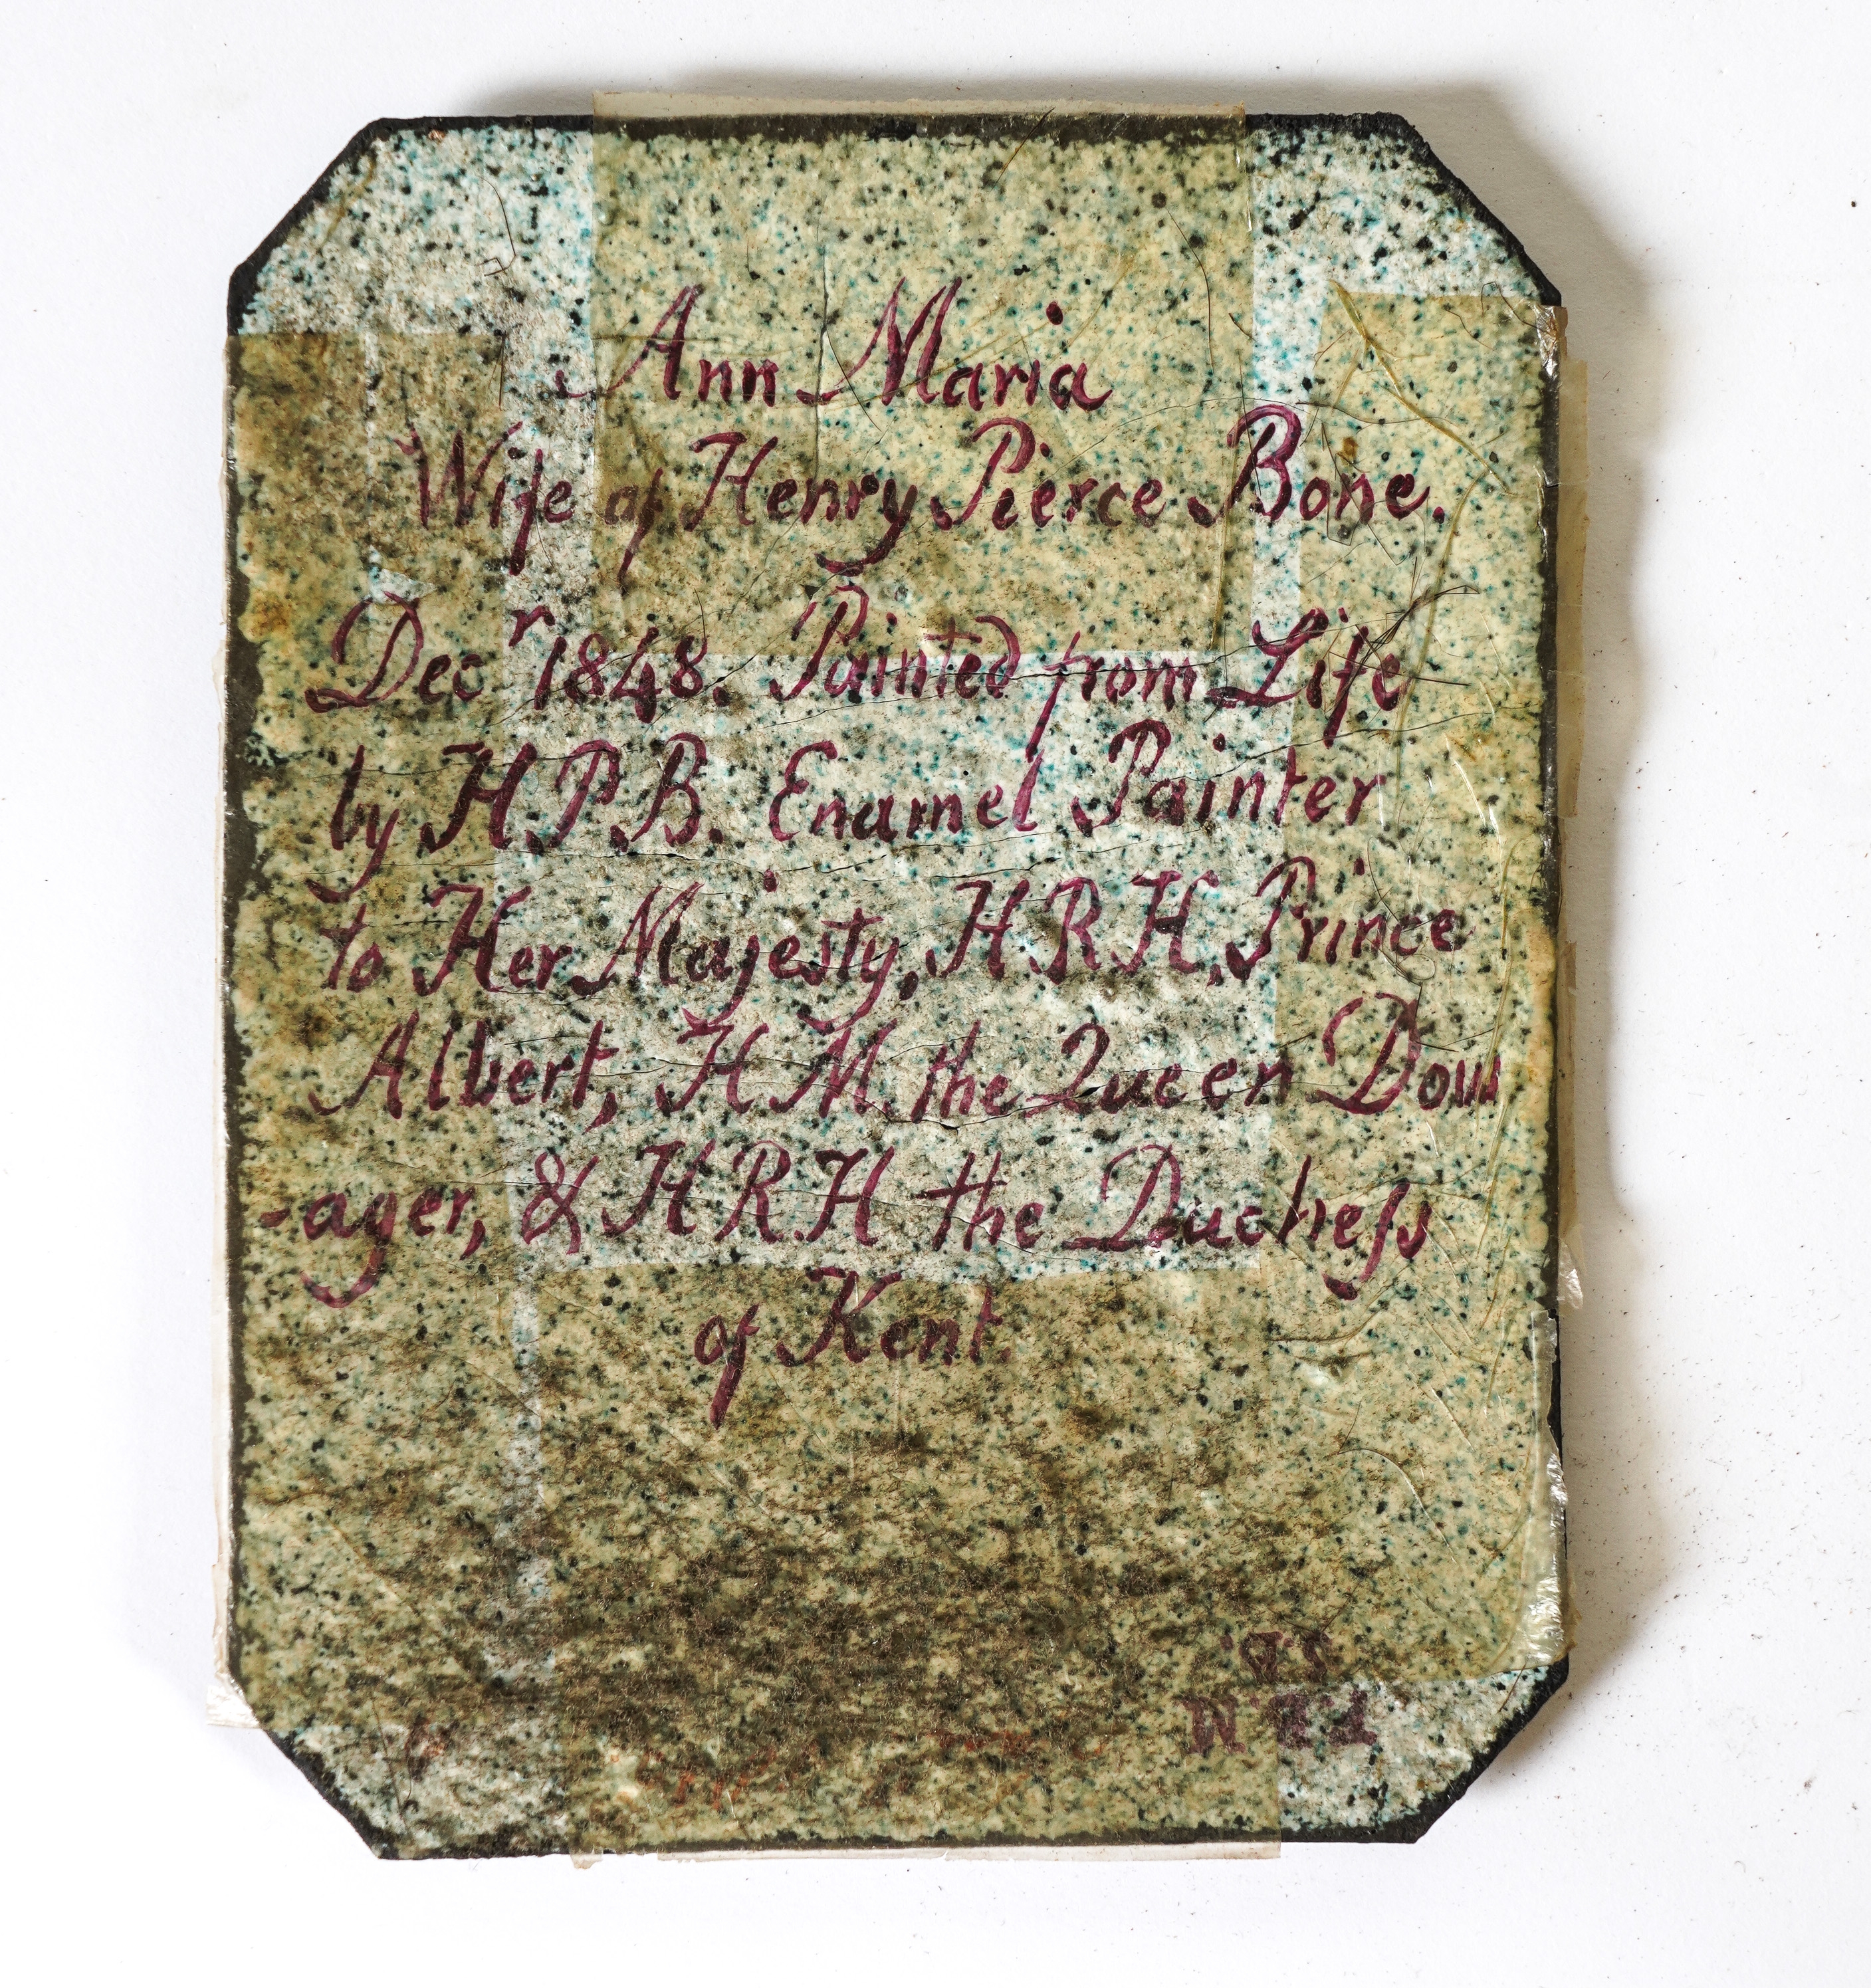 Ann Maria
Wife of Henry Pierce Bone.
Decr 1848. Painted from Life
by H.P.B. Enamel Painter
to Her Majesty, H.R.H. Prince
Albert, H.M. the Queen Dow
-ager, & H.R.H the Ducheſs
of Kent.